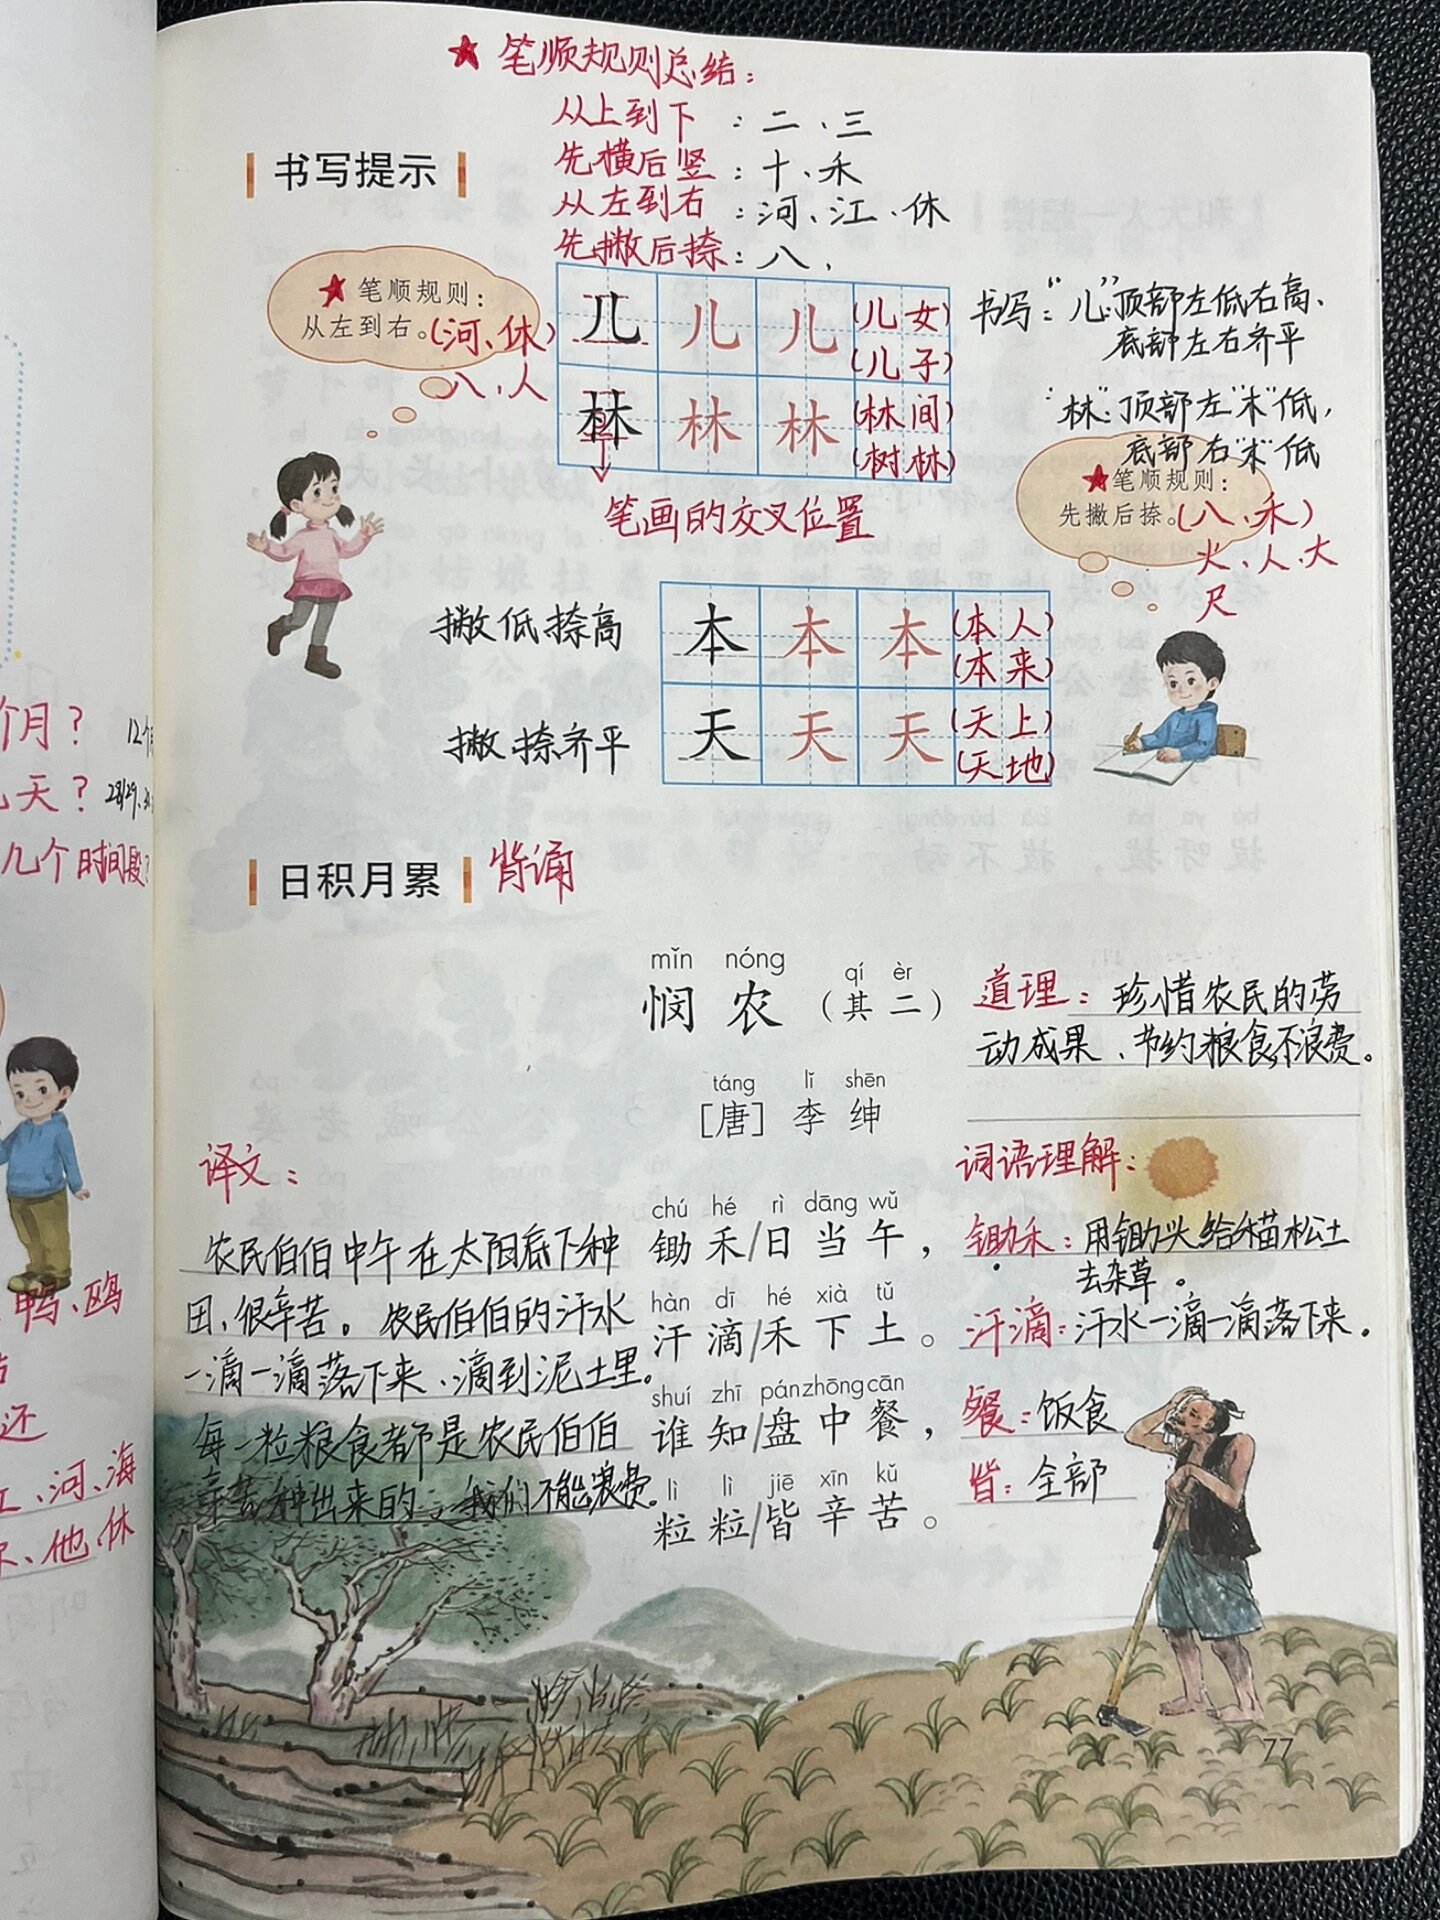 ★ 笔顺规则总结：
从上到下：二、三
先横后竖：十、禾
从左到右：河、江、休
先撇后捺：八、
书写提示
★ 笔顺规则：
从左到右。（河、休）
八、人
儿 儿 儿 （儿女）
（儿子）
林 林 林 （林间）
（树林）
笔画的交叉位置
书写：“儿”：顶部左低右高、
底部左右齐平
“林”：顶部左“木”低，
底部右“木”低
★ 笔顺规则：
先撇后捺。（八、禾）
火、人、大
尺
撇低捺高
本 本 本 （本人）
（本来）
撇、捺齐平
天 天 天 （天上）
（天地）
个月？ 12个
天？ 28/29、
几个时间段？
鸭、鸥
还
河、海
、他、休
日积月累 背诵
mǐn nóng qí èr
悯农（其二）
táng lǐ shēn
［唐］李绅
道理：珍惜农民的劳
动成果、节约粮食，不浪费。
译文：
农民伯伯中午在太阳底下种
田，很辛苦。农民伯伯的汗水
一滴一滴落下来、滴到泥土里。
每一粒粮食都是农民伯伯
辛苦种出来的，我们不能浪费。
chú hé rì dāng wǔ
锄禾/日当午，
hàn dī hé xià tǔ
汗滴/禾下土。
shuí zhī pán zhōng cān
谁知/盘中餐，
lì lì jiē xīn kǔ
粒粒/皆辛苦。
词语理解：
锄禾：用锄头给禾苗松土
去杂草。
汗滴：汗水一滴一滴落下来。
餐：饭食
皆：全部
77